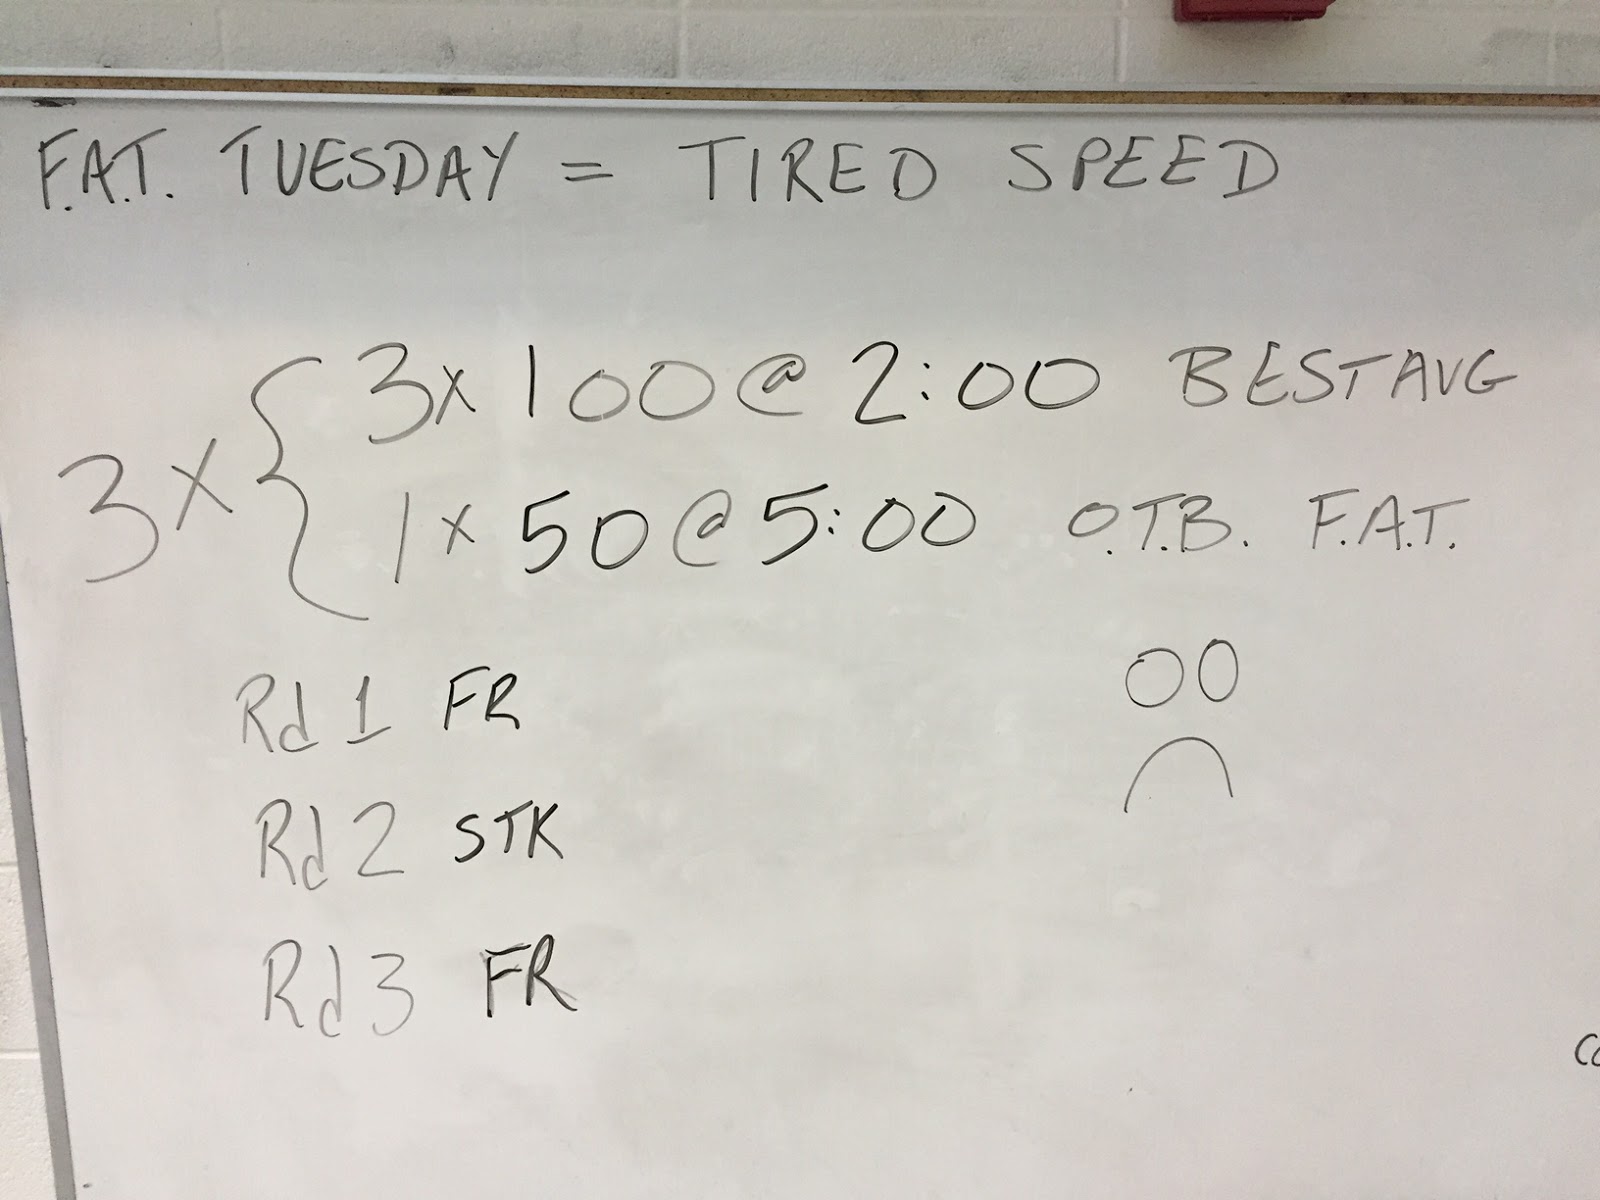 F.A.T. TUESDAY = TIRED SPEED
3 x { 3 x 100 @ 2:00 BEST AVG
1 x 50 @ 5:00 O.T.B. F.A.T.
Rd 1 FR
Rd 2 STK
Rd 3 FR